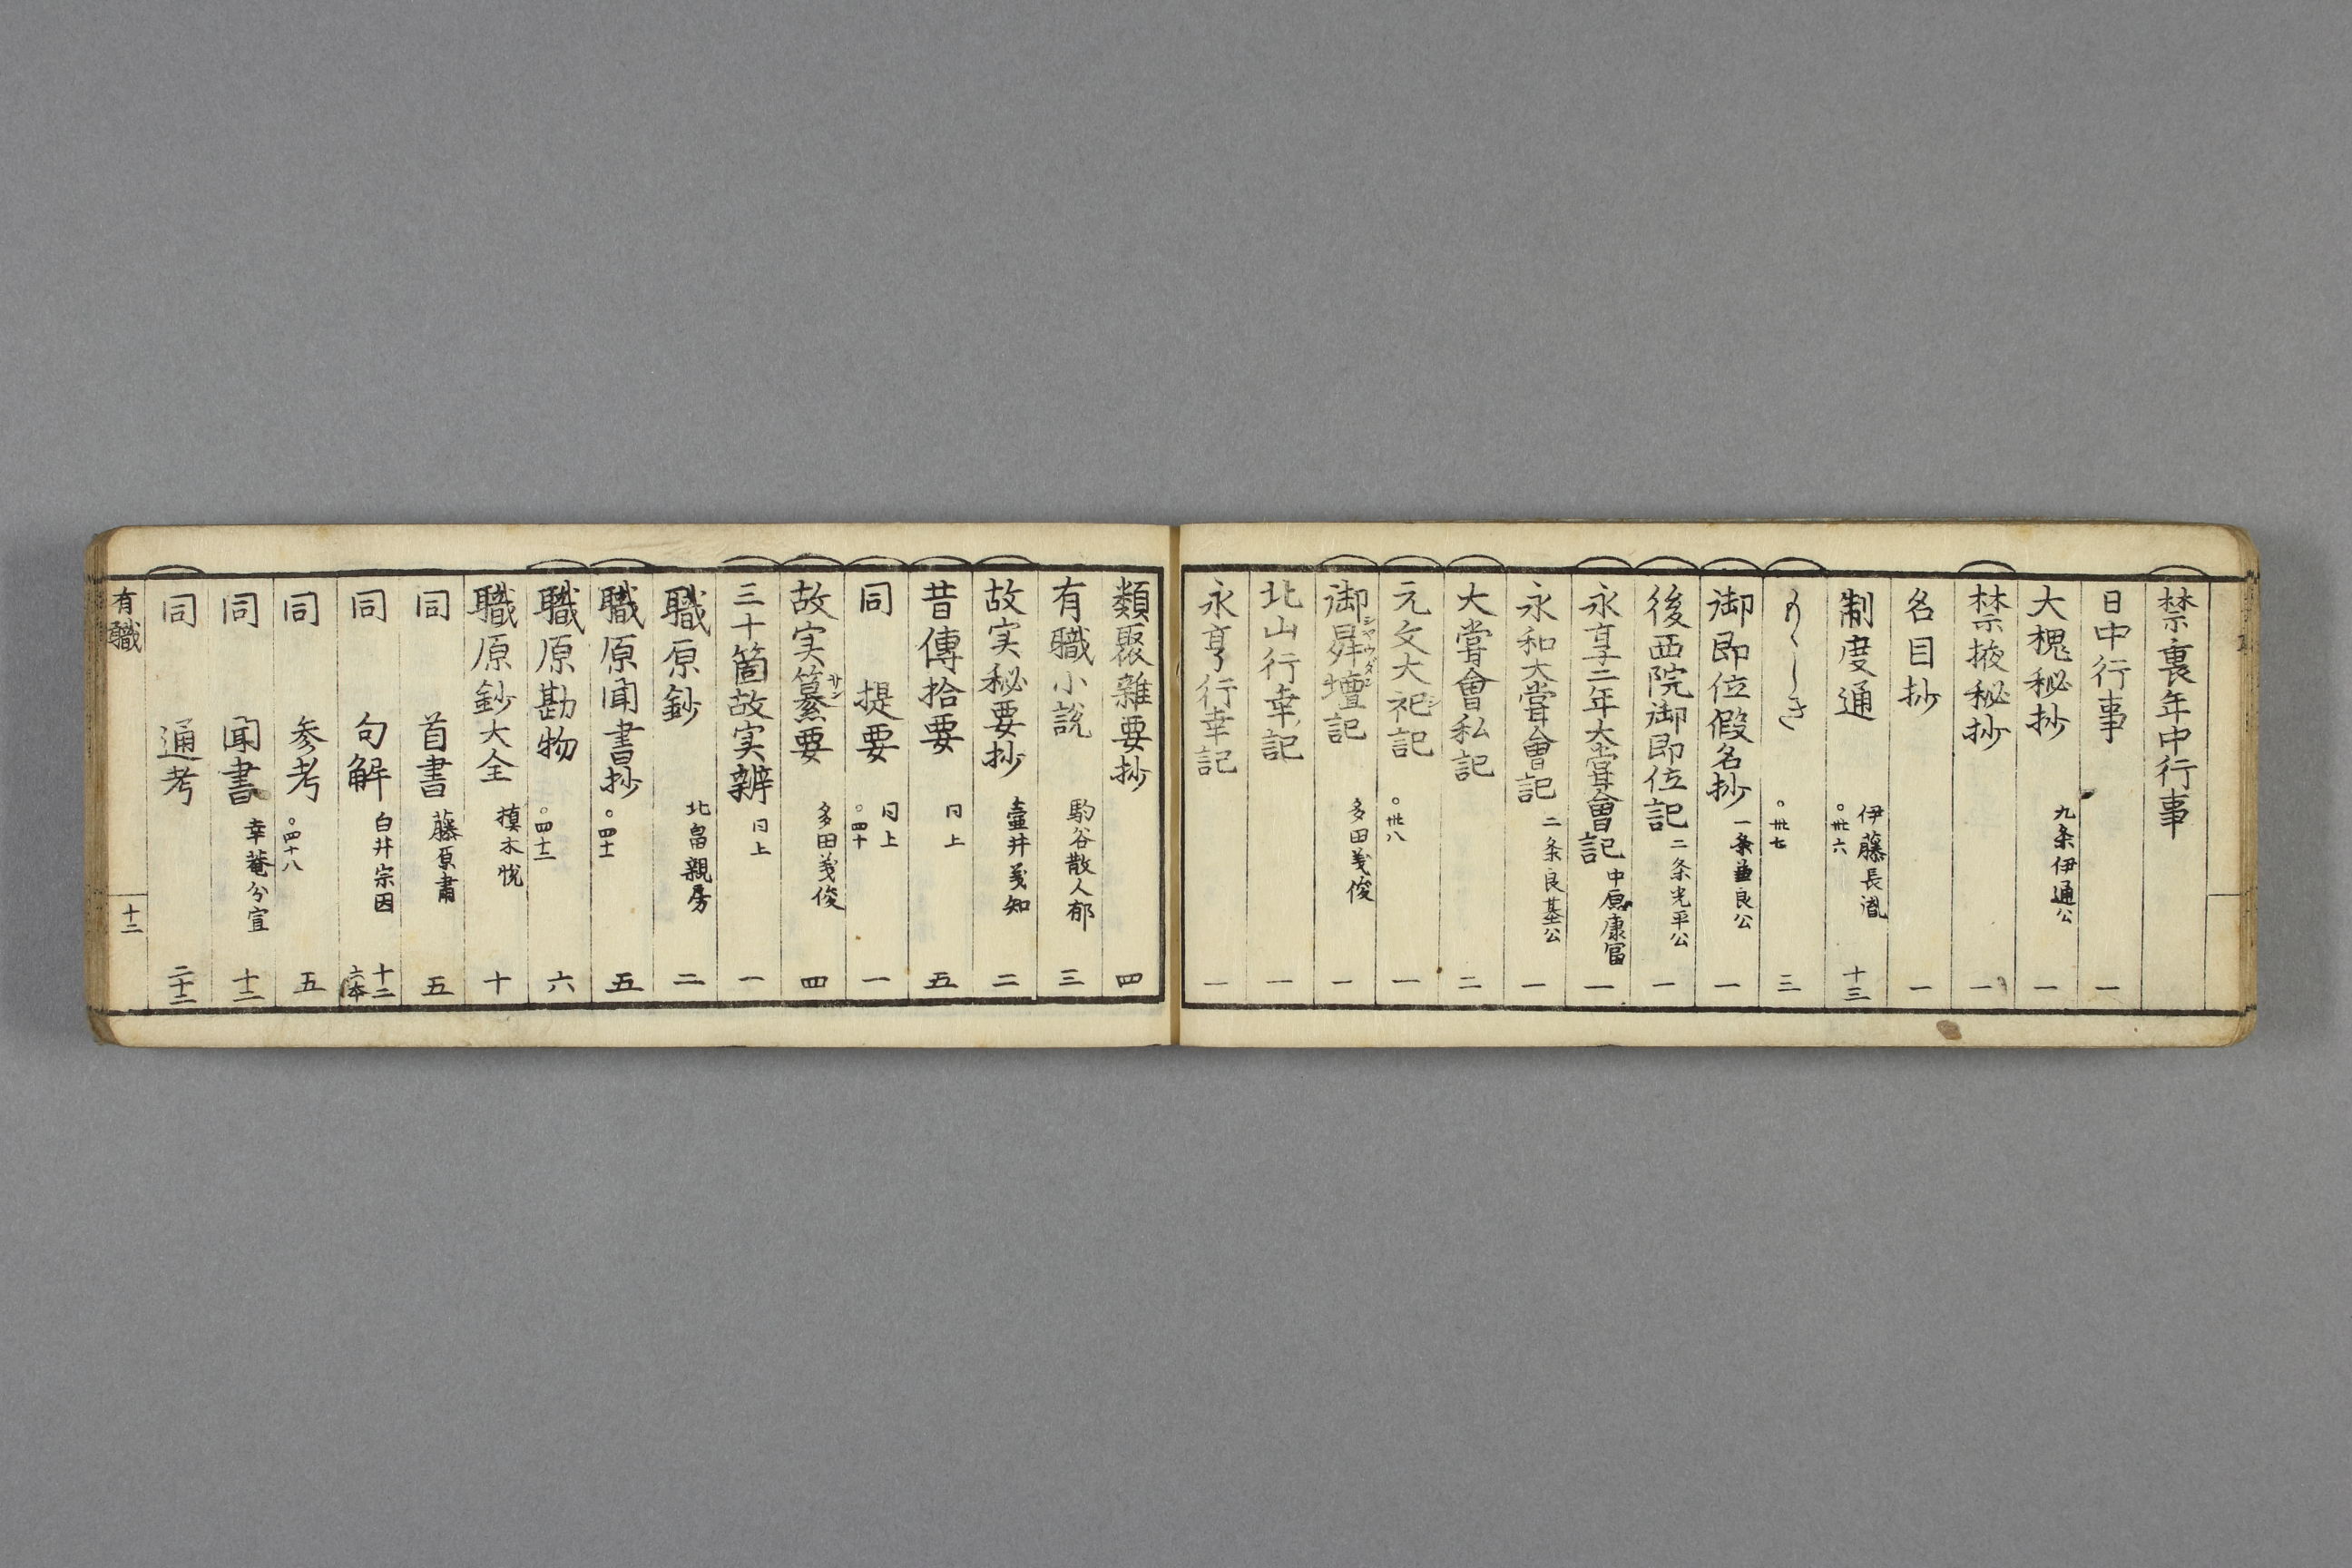 禁裏年中行事
日中行事 一
大槐秘抄 九条伊通公 一
禁掖秘抄 一
名目抄 一
制度通 伊藤長胤 ○卅六 十三
もくしき ○卅七 三
御即位假名抄 一条兼良公 一
後西院御即位記 二条光平公 一
永享二年大嘗會記 中原康冨 一
永和大嘗會記 二条良基公 一
大嘗會私記 二
元文大祀記 ○卅八 一
御昇壇記 シヤウダン 多田義俊 一
北山行幸記 一
永享行幸記 一
類聚雜要抄 四
有職小説 駒谷散人郁 三
故実秘要抄 壷井義知 二
昔傳拾要 同上 五
同 提要 同上 ○四十 一
故実纂要 サン 多田義俊 四
三十箇故実辨 同上 一
職原鈔 北畠親房 二
職原聞書抄 ○四十一 五
職原勘物 ○四十二 六
職原鈔大全 植木悦 十
同 首書 藤原肅 五
同 句解 白井宗因 十二 六本
同 参考 ○四十八 五
同 聞書 幸菴分宣 十二
同 通考 二十二
有職 十二